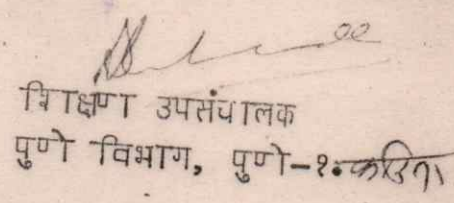 शिक्षण उपसंचालक
पुणे विभाग, पुणे-१. करिता